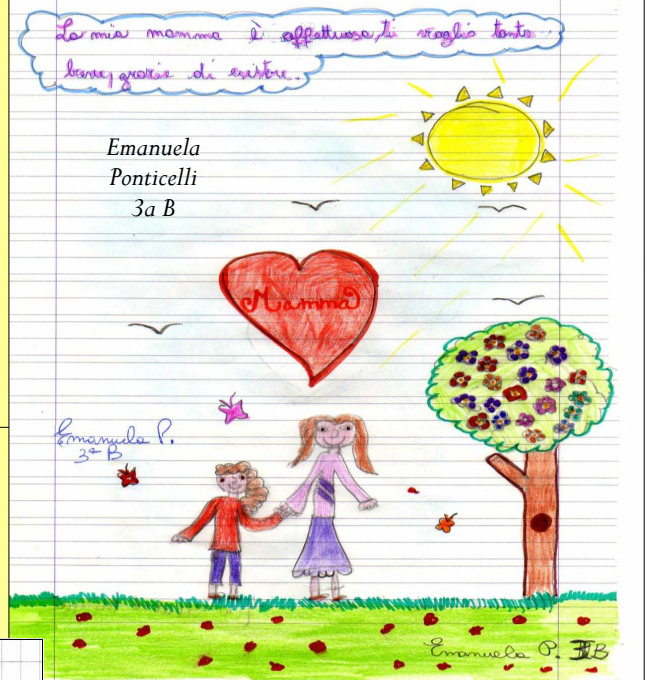 La mia mamma è affettuosa, ti voglio tanto
bene, grazie di esistere.
Emanuela
Ponticelli
3a B
Mamma
Emanuela P.
3ª B
Emanuela P. III B